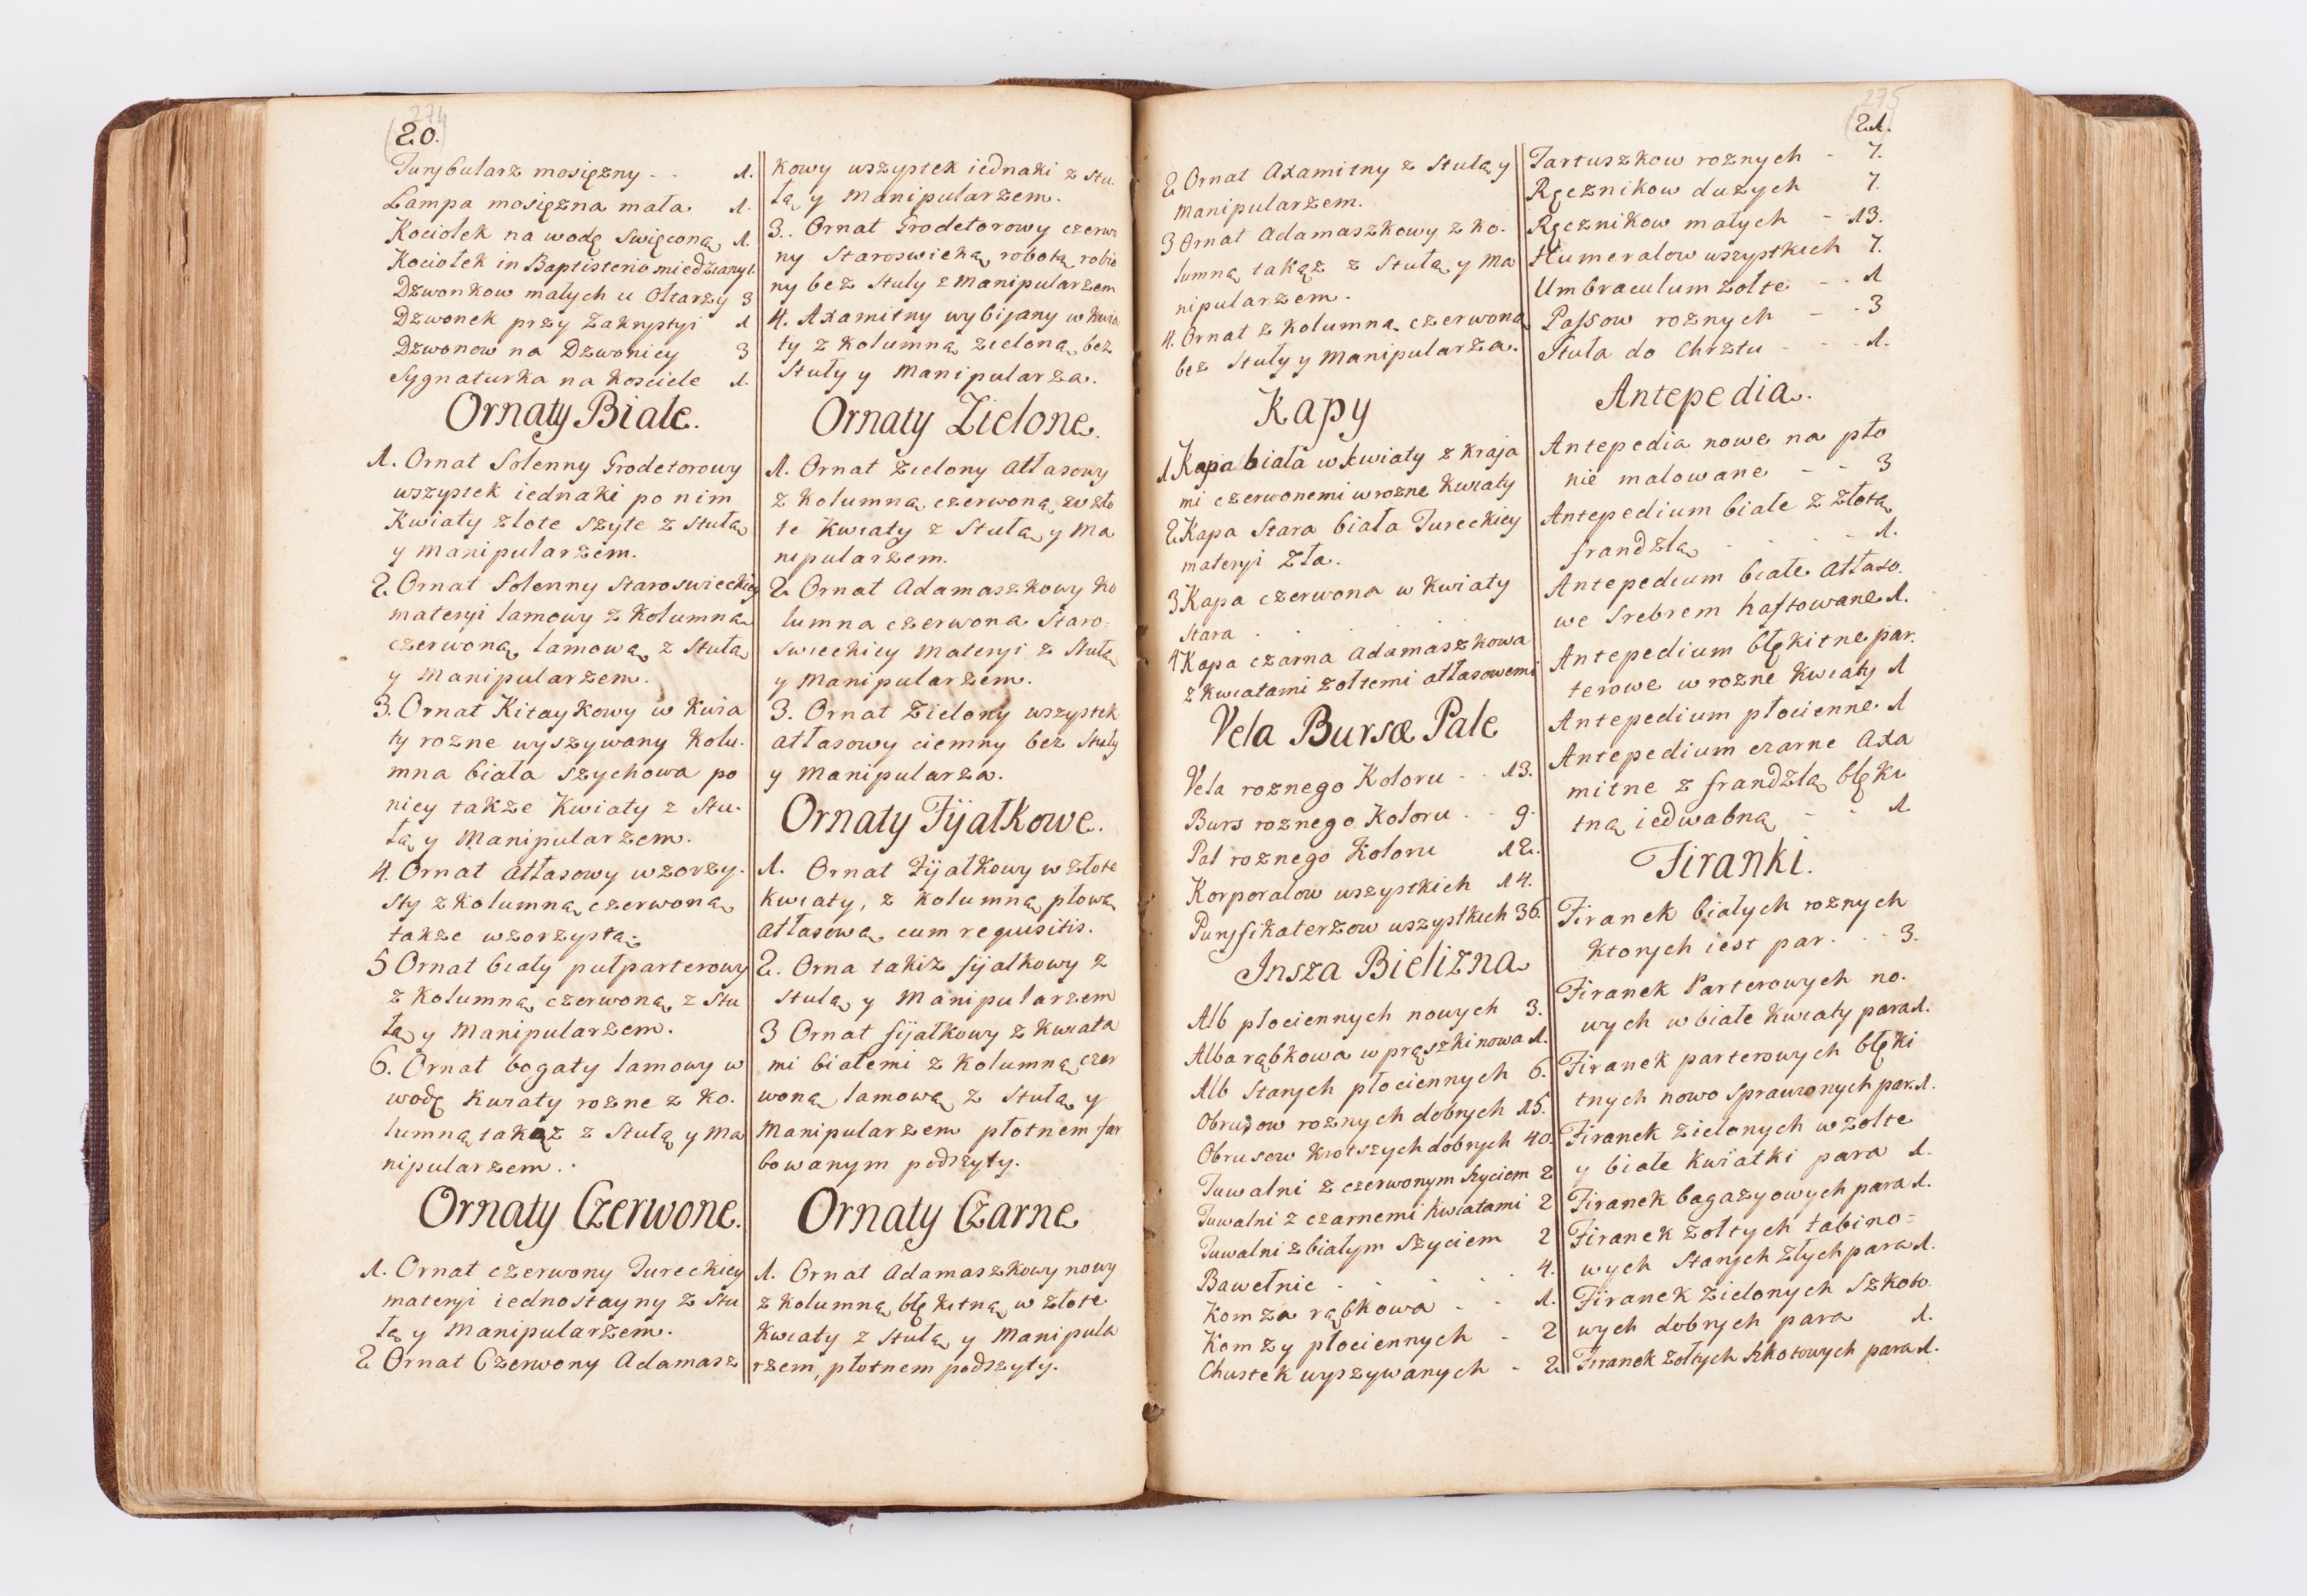 274
20.
Turybularz mosiężny - - 1.
Lampa mosiężna mała 1.
Kociołek na wodę swięconą 1.
Kociołek in Baptisterio miedziany 1.
Dzwonkow małych u Ołtarzy 3
Dzwonek przy Zakrystyi 1
Dzwonow na Dzwonicy 3
Sygnaturka na Kosciele 1.
Ornaty Białe.
1. Ornat Solenny Grodetorowy
wszystek iednaki po nim
Kwiaty złote szyte z Stułą
y Manipularzem.
2. Ornat Solenny Staroswieckiey
materyi lamowy z Kolumną
czerwoną lamową z Stułą
y Manipularzem.
3. Ornat Kitaykowy w Kwia
ty rozne wyszywany Kolu-
mna biała szychowa po
niey także Kwiaty z Stu-
łą y Manipularzem.
4. Ornat atłasowy wzorzy-
sty z Kolumną czerwoną
także wzorzystą.
5 Ornat biały pułparterowy
z Kolumną czerwoną z Stu
łą y Manipularzem.
6. Ornat bogaty lamowy w
wodę Kwiaty rozne z Ko-
lumną takąż z Stułą y Ma
nipularzem.
Ornaty Czerwone.
1. Ornat czerwony Tureckiey
materyi iednostayny z Stu
łą y Manipularzem.
2 Ornat Czerwony Adamasz
kowy wszystek iednaki z Stu-
łą y Manipularzem.
3. Ornat Grodetorowy czerwo
ny Staroswiecką robotą robio
ny bez Stuły z Manipularzem
4. Axamitny wybijany w Kwia
ty z Kolumną zieloną bez
Stuły y Manipularza.
Ornaty Zielone.
1. Ornat Zielony Atłasowy
z Kolumną czerwoną w zło
te Kwiaty z Stułą y Ma
nipularzem.
2 Ornat Adamaszkowy Ko
lumna czerwona Staro-
swieckiey Materyi z Stułą
y Manipularzem.
3. Ornat Zielony wszystek
atłasowy ciemny bez Stuły
y Manipularza.
Ornaty Fijałkowe.
1. Ornat Fijałkowy w złote
Kwiaty, z Kolumną płową
Atłasową cum requisitis.
2. Orna takiż fijałkowy z
Stułą y Manipularzem
3 Ornat fijałkowy z Kwiata
mi białemi z Kolumną czer
woną lamową z Stułą y
Manipularzem płotnem far
bowanym podszyty.
Ornaty Czarne
1. Ornat Adamaszkowy nowy
z Kolumną błękitną w złote
Kwiaty z Stułą y Manipula
rzem, płotnem podszyty.
275
21.
2 Ornat Axamitny z Stułą y
Manipularzem.
3 Ornat Adamaszkowy z Ko-
lumną takąż z Stułą y Ma
nipularzem.
4. Ornat z Kolumną czerwoną
bez Stuły y Manipularza.
Kapy
1 Kapa biała w kwiaty z kraja
mi czerwonemi w rozne Kwiaty
2 Kapa Stara biała Tureckiey
materyi zła.
3 Kapa czerwona w Kwiaty
Stara
4 Kapa czarna Adamaszkowa
z Kwiatami żołtemi atłasowemi
Vela Bursæ Pale
Vela roznego Koloru - - 13.
Burs roznego Koloru - - 9.
Pal roznego Koloru 12.
Korporałow wszystkich 14.
Puryfikaterzow wszystkich 36.
Insza Bielizna
Alb płociennych nowych 3.
Alba rąbkowa w prążki nowa 1.
Alb Starych płociennych 6.
Obrusow roznych dobrych 15.
Obrusow krotszych dobrych 40.
Tuwalni z czerwonym szyciem 2
Tuwalni z czarnemi Kwiatami 2
Tuwalni z białym szyciem 2
Bawełnic - - - 4.
Komza rąbkowa - - 1.
Komzy płociennych - 2
Chustek wyszywanych - 2
Tartuszkow roznych - 7.
Ręcznikow duzych 7.
Ręcznikow małych - - 13.
Humerałow wszystkich 7.
Umbraculum żołte - - 1
Passow roznych - - 3
Stuła do Chrztu - - - 1.
Antepedia.
Antepedia nowe na pło
nie malowane - - 3
Antepedium białe z złotą
frandzlą - - - 1.
Antepedium białe atłaso-
we srebrem haftowane 1.
Antepedium błękitne par-
terowe w rozne Kwiaty 1
Antepedium płocienne 1
Antepedium czarne Axa
mitne z frandzlą błęki
tną iedwabną - - 1
Firanki.
Firanek białych roznych
Ktorych iest par - - 3.
Firanek Parterowych no-
wych w białe Kwiaty para 1.
Firanek parterowych błęki
tnych nowo sprawionych par. 1.
Firanek zielonych w żołte
y białe Kwiatki para 1.
Firanek bagazyowych para 1.
Firanek żołtych tabino=
wych Starych złych para 1.
Firanek Zielonych Szkoto-
wych dobrych para 1.
Firanek żołtych szkotowych para 1.